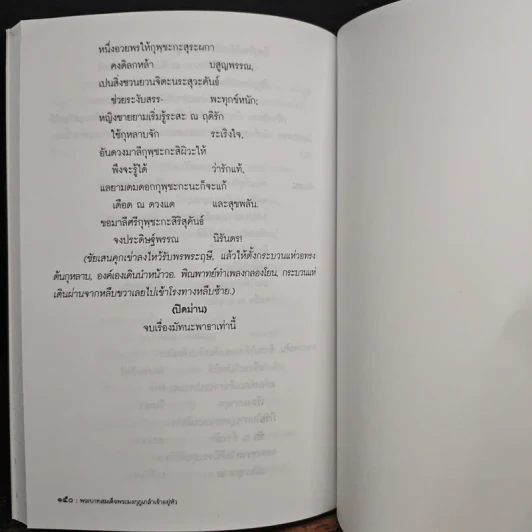 หนึ่งอวยพรให้กุพฺชะกะสุระผกา
คงดิลกหล้า บสูญพรรณ,
เปนสิ่งชวนยวนจิตะนระสุวะคันธ์
ช่วยระงับสรร- พะทุกข์หนัก;
หญิงชายยามเริ่มรู้ระสะ ณ ฤติรัก
ใช้กุหลาบจัก ระเริงใจ,
อันดวงมาลีกุพฺชะกะสิผิวะให้
พึงจะรู้ได้ ว่ารักแท้,
แลยามดมดอกกุพฺชะกะนะก็จะแก้
เดือด ณ ดวงแด และสุขพลัน.
ขอมาลีศรีกุพฺชะกะสิริสุคันธ์
จงประดิษฐ์พรรณ นิรันดร!
(ชัยเสนคุกเข่าลงไหว้รับพรพระฤษี, แล้วให้ตั้งกระบวนแห่วอทรง
ต้นกุหลาบ, องค์เองเดินนำหน้าวอ. พิณพาทย์ทำเพลงกลองโยน, กระบวนแห่
เดินผ่านจากหลืบขวาเลยไปเข้าโรงทางหลืบซ้าย.)
(ปิดม่าน)
จบเรื่องมัทนะพาธาเท่านี้
๑๕๐ : พระบาทสมเด็จพระมงกุฎเกล้าเจ้าอยู่หัว